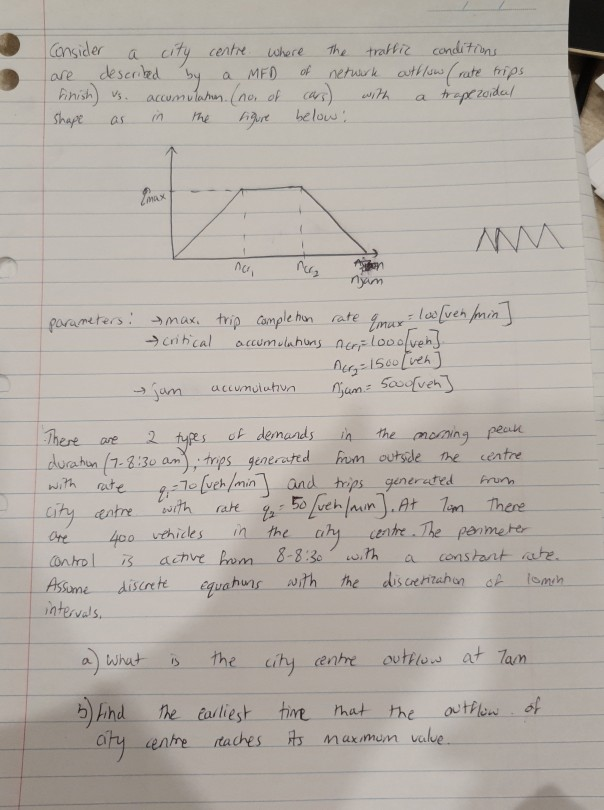 Consider a city centre where the traffic conditions
are described by a MFD of network outflow (rate trips
finish) vs. accumulation (no. of cars) with a trapezoidal
shape as in the figure below:
qmax
ncr1 ncr2
njam
parameters: → max. trip completion rate qmax = 100 [veh/min]
→ critical accumulations ncr1 = 1000 [veh]
ncr2 = 1500 [veh]
→ jam accumulation njam = 5000 [veh]
There are 2 types of demands in the morning peak
duration (7-8:30 am); trips generated from outside the centre
with rate q1 = 70 [veh/min] and trips generated from
city centre with rate q2 = 50 [veh/min]. At 7am there
are 400 vehicles in the city centre. The perimeter
control is active from 8-8:30 with a constant rate.
Assume discrete equations with the discretization of 10min
intervals.
a) What is the city centre outflow at 7am
b) Find the earliest time that the outflow of
city centre reaches its maximum value.